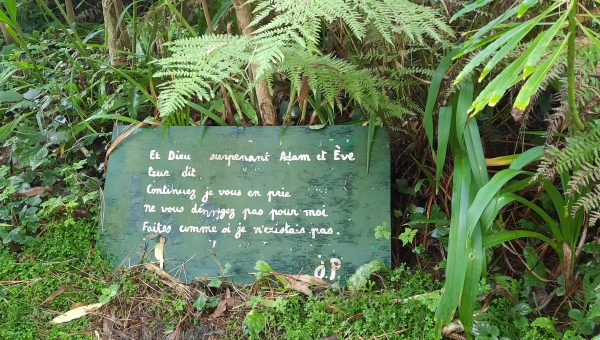 Et Dieu surprenant Adam et Ève
leur dit
Continuez je vous en prie
Ne vous dérangez pas pour moi
Faites comme si je n'existais pas.
J.P